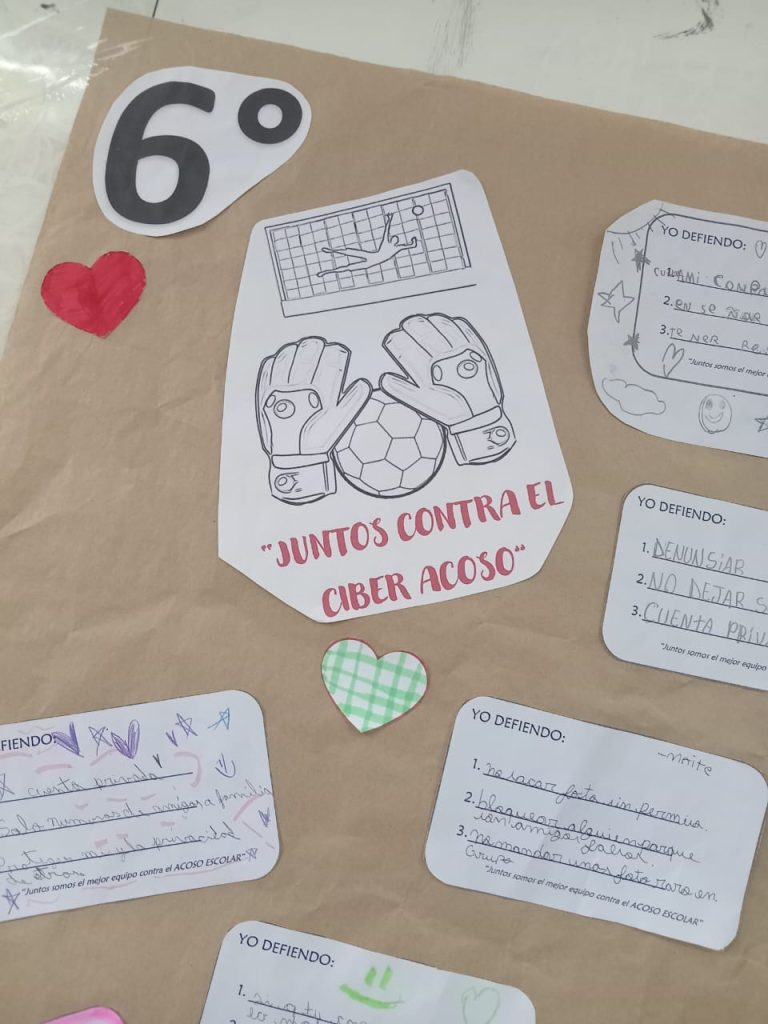 6°
"JUNTOS CONTRA EL
CIBER ACOSO"
YO DEFIENDO:
1. MI
2. EN SE ÑAR
3. TE NER
"Juntos somos el mejor
YO DEFIENDO:
1. DENUNSIAR
2. NO DEJAR S
3. CUENTA PRIVA
"Juntos somos el mejor equipo
FIENDO:
cuenta privada
Solo numeros de amigos a familia
privacidad
de otros
"Juntos somos el mejor equipo contra el ACOSO ESCOLAR"
YO DEFIENDO:
-Maite
1. no sacar foto sin permiso.
2. bloquear alguien porque
3. no mandar unas foto raro en
Grupo
"Juntos somos el mejor equipo contra el ACOSO ESCOLAR"
YO DEFIENDO:
1.